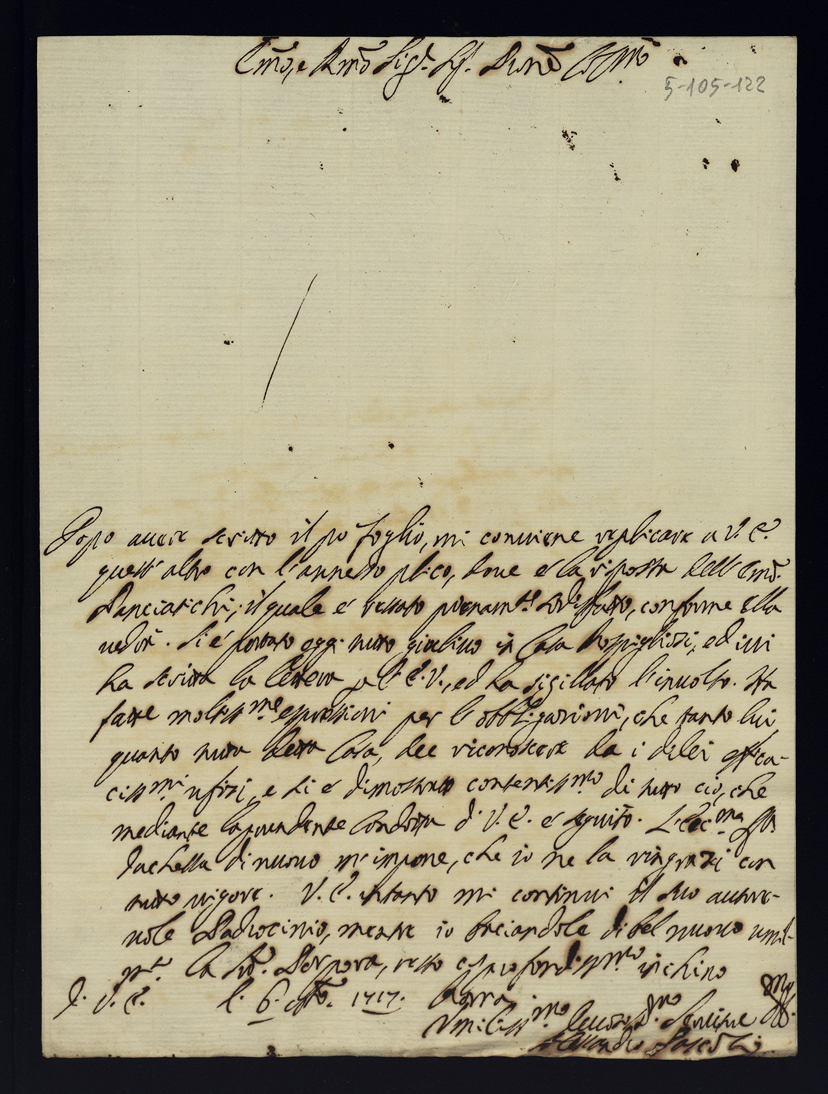 Em̃o, e Rmõ Sig.r Sig. Pron̄e
5-105-122
Dopo avere scritto il p̃o foglio, mi conviene replicare a V. E.
quest' altro con l'annesso plico, dove è la risposta dell' Em̃o.
Panciatichi, il quale è restato pienam.te sodisfatto, conforme Ella
vedrà. Si è portato oggi tutto giulivo in Casa Rospigliosi, ed ivi
ha scritta la lettera a V. E., ed ha sigillato l'involto. Ha
fatte moltiss.me espressioni per l'obbligazioni, che tanto lui
quanto tutta detta Casa, dee riconoscere da i di lei effica-
ciss.mi ufizi, e si è dimostrato contentiss.mo di tutto ciò, che
mediante la prudente Condotta di V. E. è seguito. L'Ecc.ma
Duchessa di nuovo m'impone, che io ne la ringrazi con
tutto vigore. V. E. intanto mi continui il suo autore-
vole Padrocinio, mentre io baciandole di bel nuovo umil-
m.te la Porpora, resto e profondiss.mo inchino
D. V. E. 6. 1717. Roma
Umiliss.mo Servitore
Alessandro